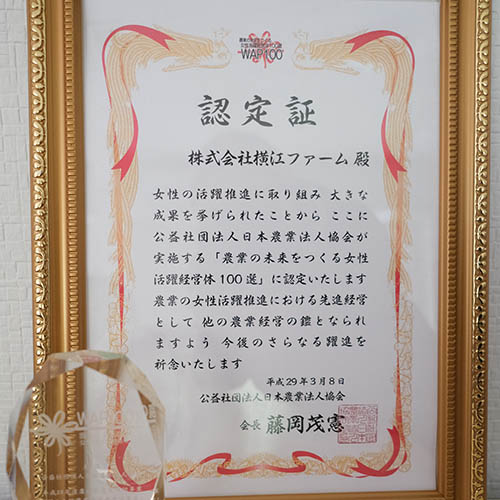 農業の未来をつくる
女性活躍経営体100選
WAP100
認定証
株式会社横江ファーム 殿
女性の活躍推進に取り組み 大きな
成果を挙げられたことから ここに
公益社団法人日本農業法人協会が
実施する「農業の未来をつくる女性
活躍経営体100選」に認定いたします
農業の女性活躍推進における先進経営
として 他の農業経営の鑑となられ
ますよう 今後のさらなる躍進を
祈念いたします
平成29年3月8日
公益社団法人日本農業法人協会
会長 藤岡茂憲